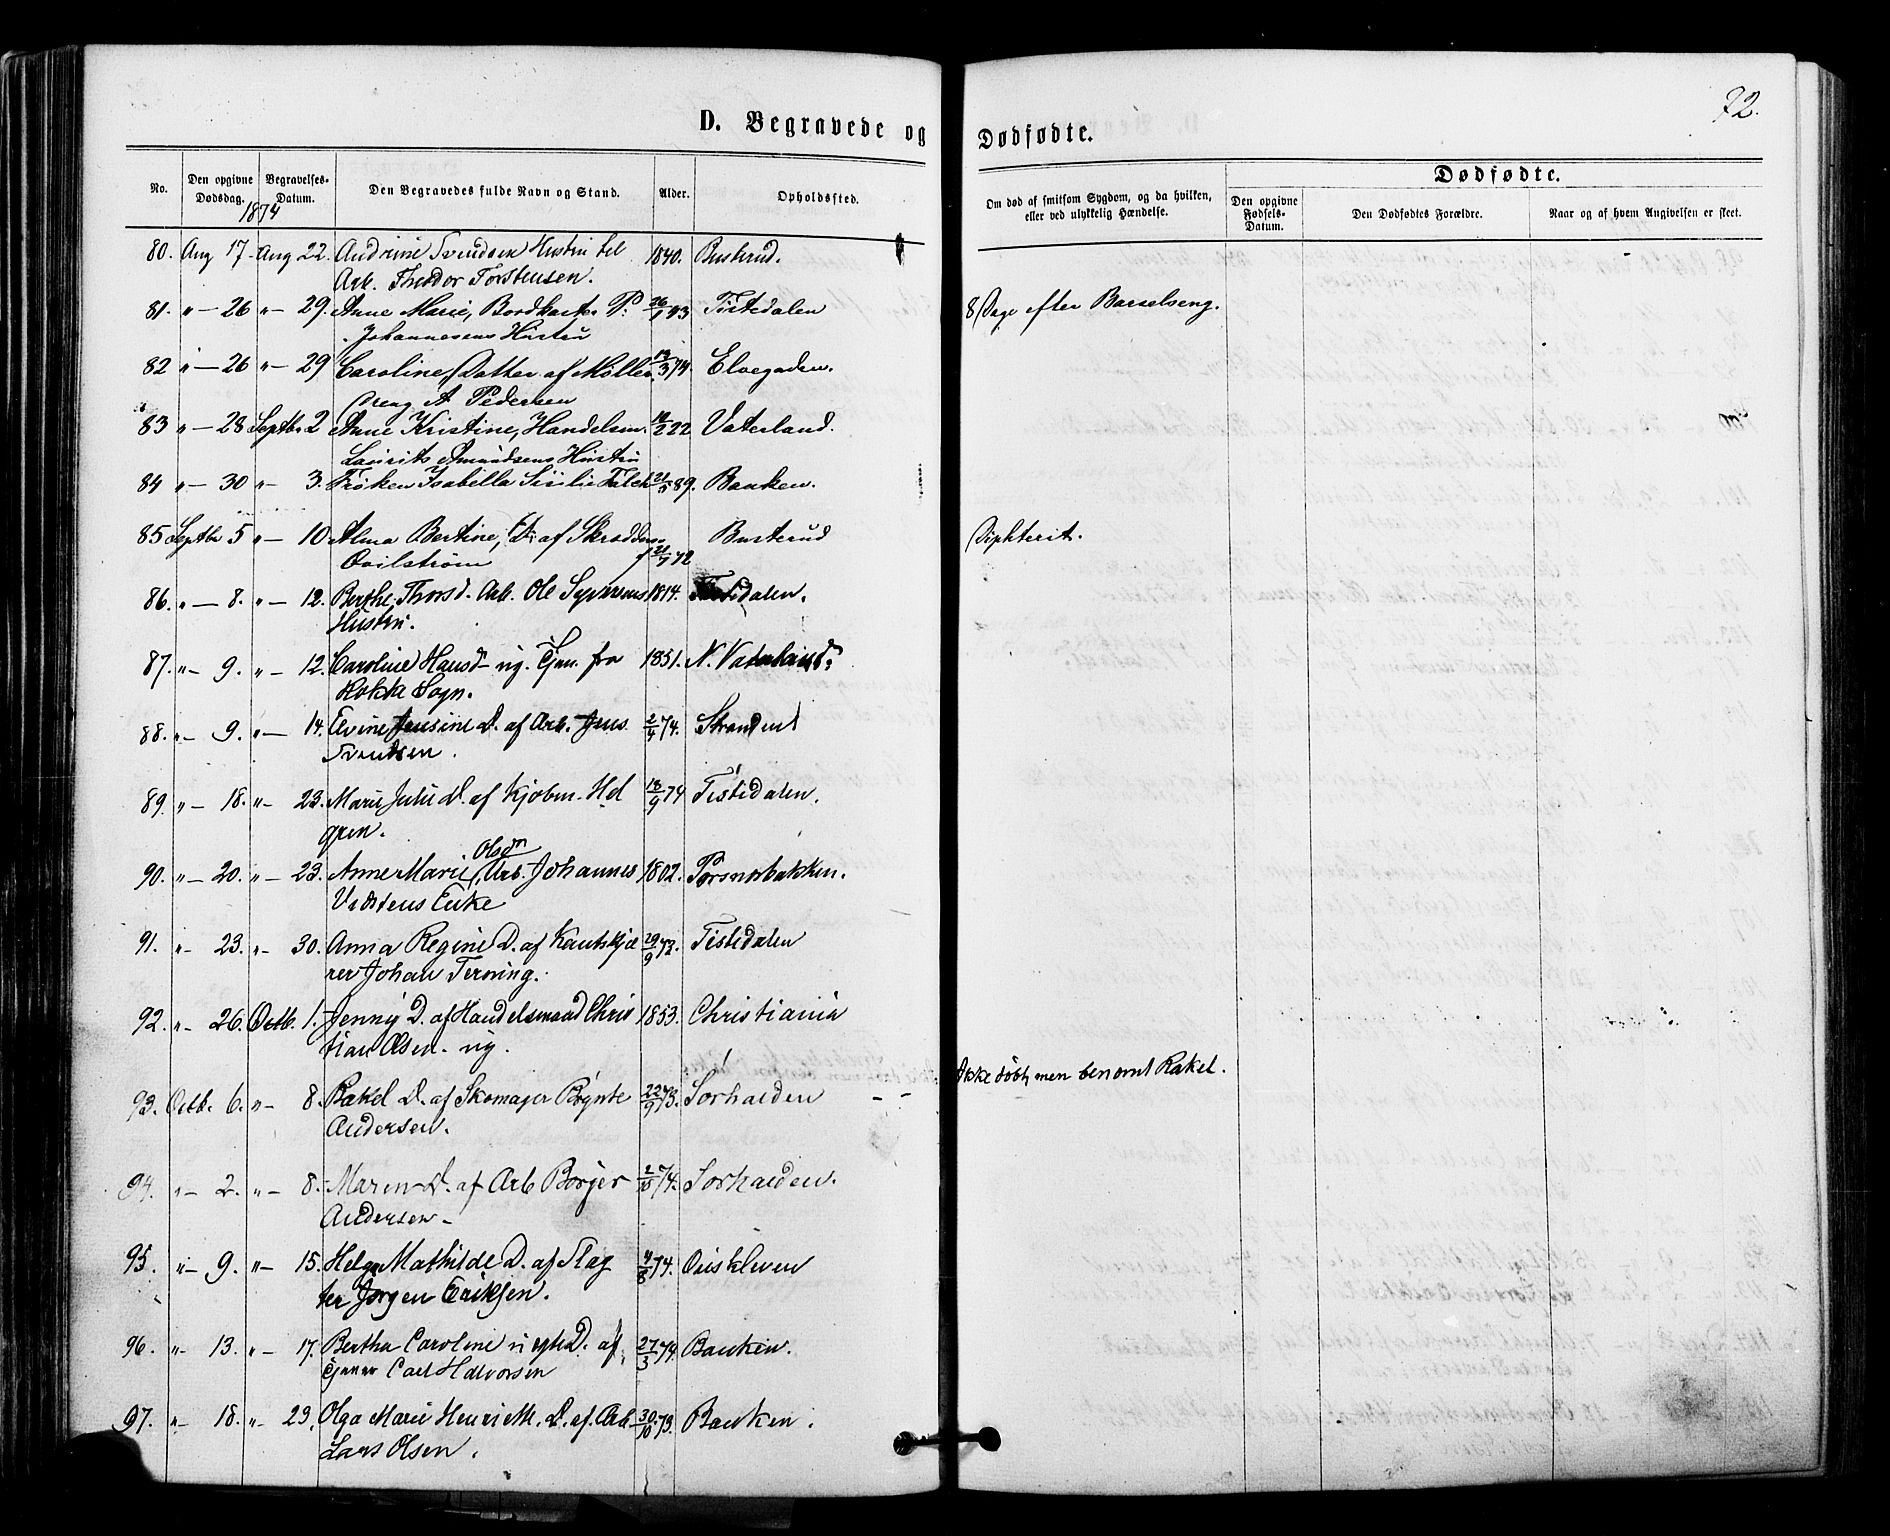 72.
D. Begravede og Dødfødte.
No. Den opgivne Dødsdag. Begravelses-Datum. Den Begravedes fulde Navn og Stand. Alder. Opholdssted. Om død af smitsom Sygdom, og da hvilken, eller ved ulykkelig Hændelse. Dødfødte.
Den opgivne Fødsels-Datum. Den Dødfødtes Forældre. Naar og af hvem Angivelsen er skeet.
1874
80. Aug 17. Aug 22. Andrine Svendsen Hustru til 1840. Busterud.
Arb. Theodor Torstensen.
81. " — 26 " — 29. Anne Marie, Bordkast. P. 26/1 43 Tistedalen 8 Dage efter Barselseng.
Johannesens Hustru
82 " — 26 " — 29 Caroline, Datter af Møller 13/3 74. Elvegaden.
dreng A Pedersen
83 " — 28 Septbr 2 Anne Kristine, Handelsm. 22 Vaterland.
Laurits Amundsens Hustru
84 " — 30 " — 3. Frøken Isabella Falch 21/5 89. Banken.
85 Septbr 5 " — 10 Alma Bertine, D. af Skrædder Busterud Diphterit.
Qvilstrøm f 21/7 72
86. " — 8. " — 12. Berthe Thorsd. Arb. Ole Syversens 1814. Tistedalen.
Hustru.
87. " — 9. " — 12. Caroline Hansd. ug. Tjen. fra 1851. N. Vaterland.
Rokke Sogn.
88. " — 9. " — 14. Elvine Jensine D. af Arb. Jens 2/4 74. Stranden
Svendsen.
89. " — 18. " — 23. Marie Julie D. af Kjøbm. Hol 18/9 74 Tistedalen.
gren.
Olsdr
90. " — 20. " — 23. Anne Marie, Arb. Johannes 1802. Porsnesbakken.
Enke
91. " — 23. " — 30. Anna Regine D. af 29/9 73. Tistedalen
rer Johan Terning.
92. " — 26. Octb. 1. Jenny D. af Handelsmand Chris 1853. Christiania
tian Olsen. ug.
93. Octb. 6. " — 8. Rakel D. af Skomager Bøynte 22/9 73. Sørhalden - - Ikke døbt, men benævnt Rakel.
Andersen.
94. " — 2. " — 8. Maren D. af Arb Børjer 2/10 74. Sørhalden.
Andersen
95. " — 9. " — 15. Helga Mathilde D. af Slag 4/8 74. Ouskleven
ter Jørgen Eriksen.
96. " — 13. " — 17. Bertha Caroline uægte D. af 27/3 74. Banken.
Tjener Carl Halvorsen
97. " — 18. " — 23. Olga Marie Henriette. D. af Arb 30/10 73. Banken.
Lars Olsen.